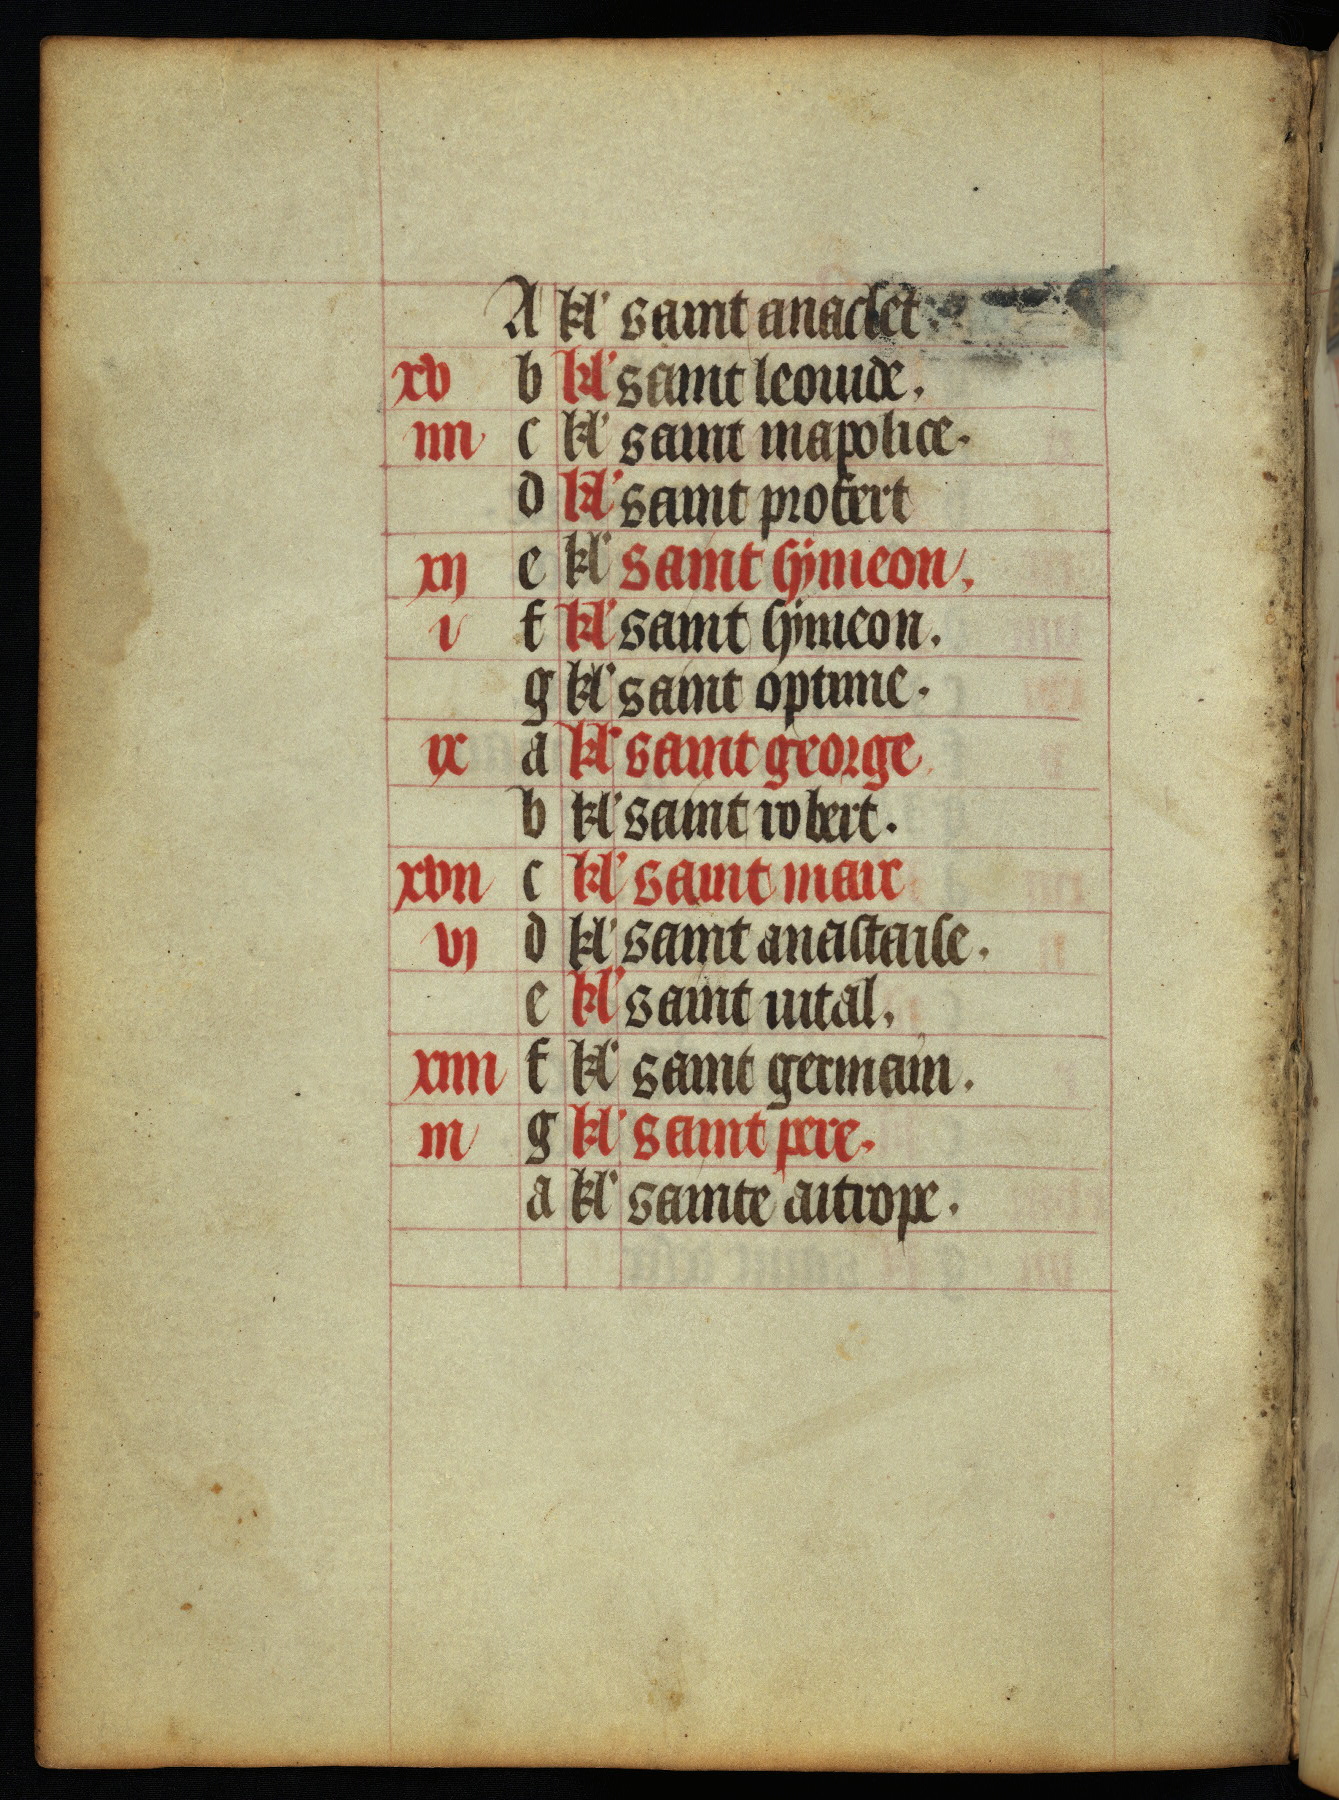 A kl' saint anaclet.
xv b kl' saint leouide.
iiii c kl' saint mapolice.
d kl' saint protert
xij e kl' saint symeon.
i f kl' saint symeon.
g kl' saint optune.
ix a kl' saint george.
b kl' saint robert.
xvii c kl' saint marc
vj d kl' saint anastaise.
e kl' saint uital.
xiiii f kl' saint germain.
iii g kl' saint pere.
a kl' sainte aitrope.